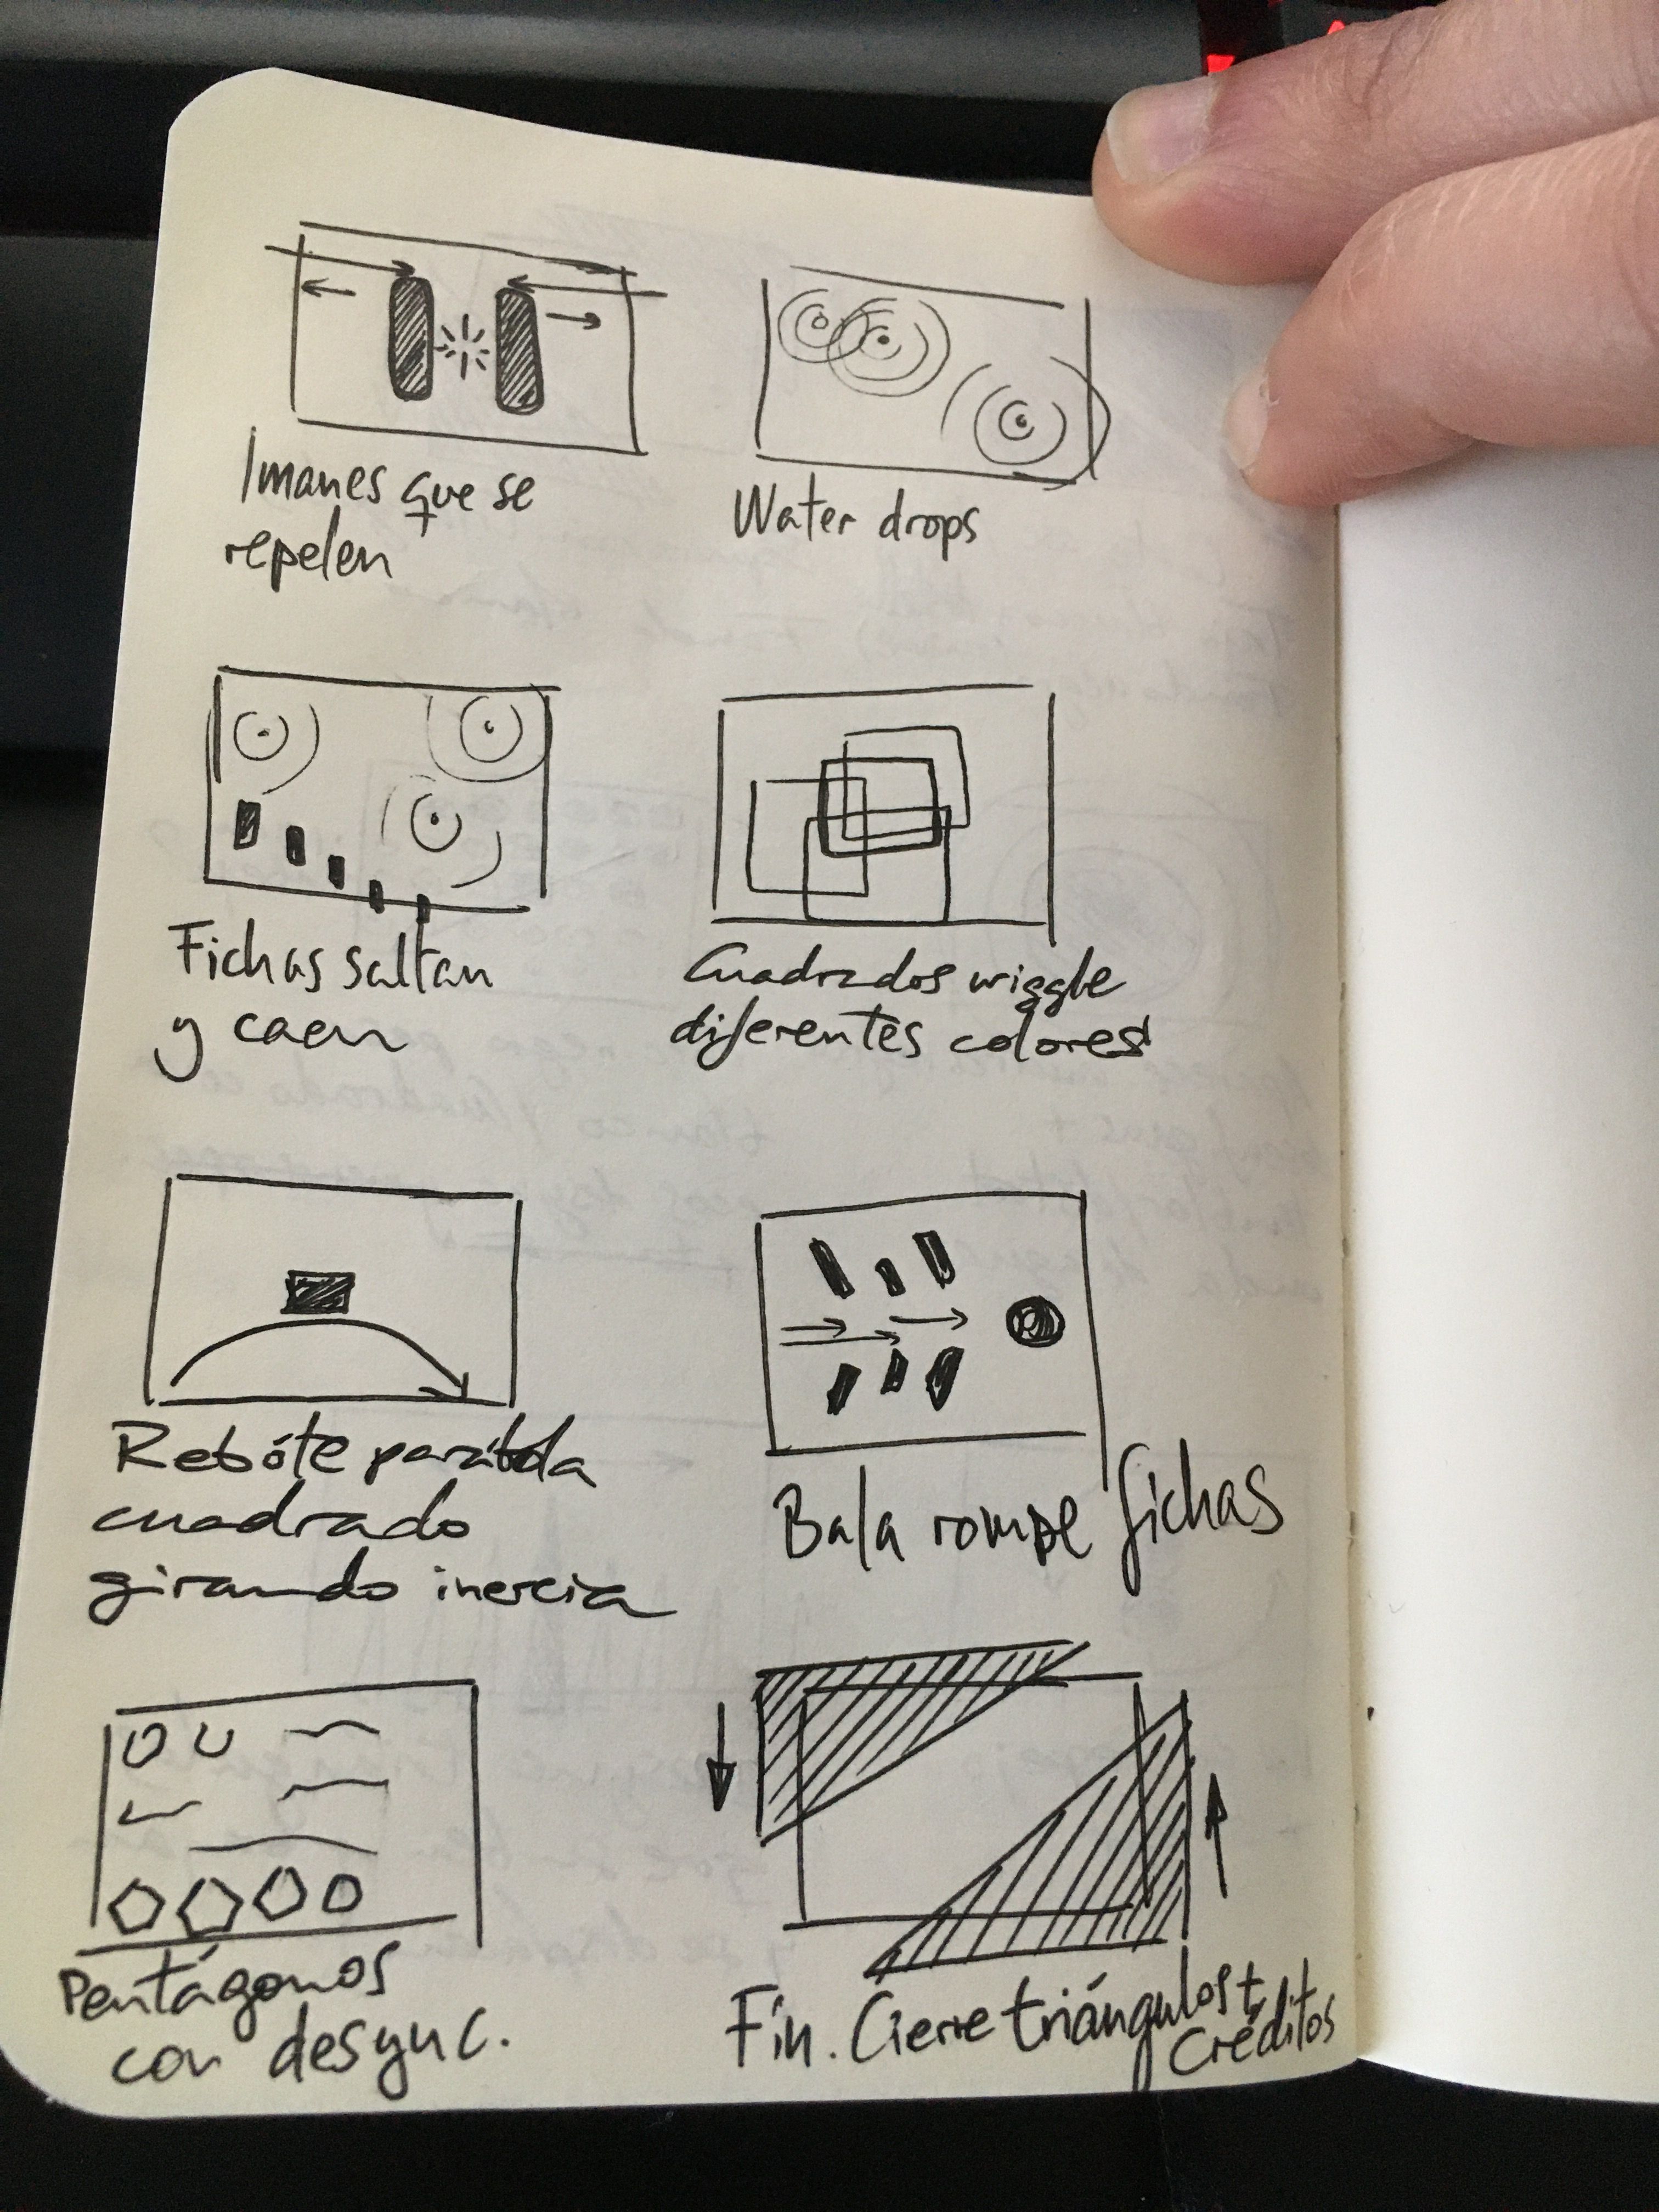 Imanes que se
repelen
Water drops
Fichas saltan
y caen
Cuadrados wiggle
diferentes colores
Rebóte
cuadrado
girando inercia
Bala rompe fichas
Pentágonos
con desync.
Fin. Cierre triángulos +
Créditos